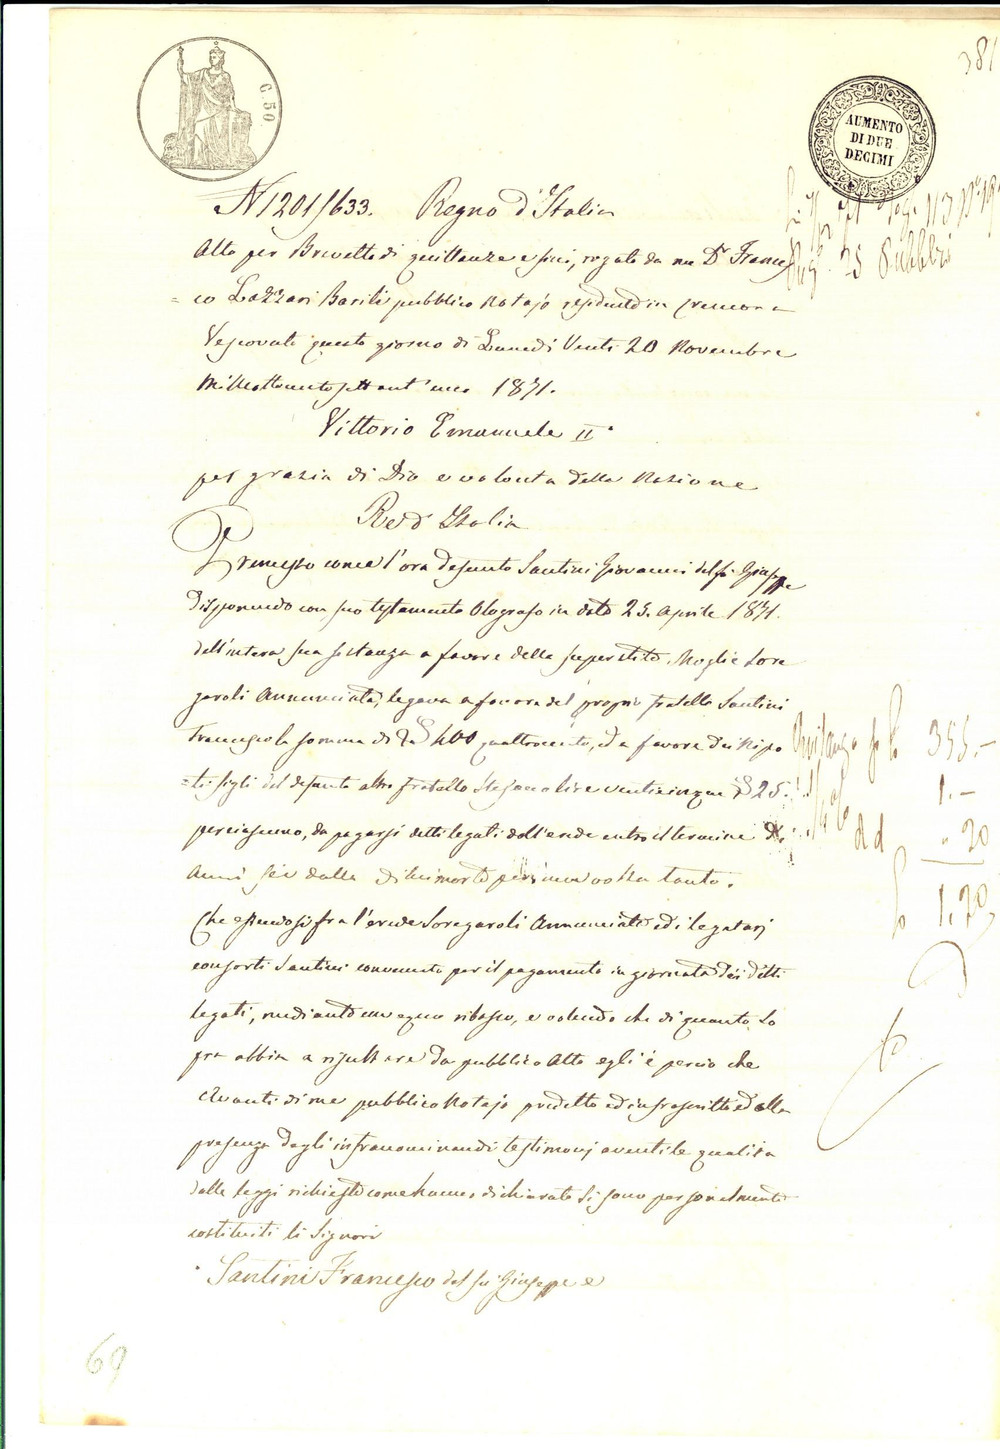 381
C. 50.
AUMENTO
DI DUE
DECIMI
N 1201/633. Regno d'Italia
Atto per Brevetto di quittanza e fini, rogato da me Dr. Frances
= co Lazzari Barili pubblico Notajo residente in Cremona
Vescovato questo giorno di Lunedì Venti 20 Novembre
Milleottocentosettant'uno 1871.
Vittorio Emanuele II°
per grazia di Dio e volontà della Nazione
Re d'Italia
Premesso come l'ora defunto Santini Giovanni del fu Giuseppe
disponendo con suo testamento Olografo in data 23. Aprile 1871.
dell'intera sua sostanza a favore della superstite Moglie Sore
garoli Annunciata, legava a favore del proprio fratello Santini
Francesco la somma di 400 quattrocento, ed a favore dei Nipo
= ti figli del defunto altro fratello Stefano lire venticinque 25.
per ciascuno, da pagarsi detti legati dall'erede entro il termine di
Anni sei dalla di lui morte per una volta tanto.
Che essendosi fra l'erede Soregaroli Annunciata ed i legatarj
consorti Santini convenuto per il pagamento in giornata dei detti
legati, mediante un equo ribasso, e volendo che di quanto so
pra abbia a risultare da pubblico Atto egli è perciò che
Avanti di me pubblico Notajo predetto ed infrascritto ed alla
presenza degli infranominandi testimonj aventi le qualità
dalle leggi richieste come hanno dichiarato si sono personalmente
costituiti li Signori
Santini Francesco del fu Giuseppe e
Quitanza 355.–
1.–
20
1.20
69